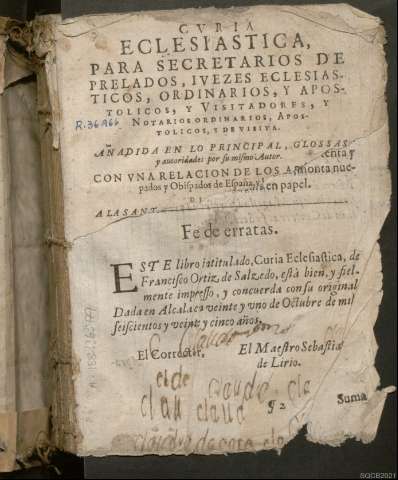 CVRIA
ECLESIASTICA,
PARA SECRETARIOS DE
PRELADOS, IVEZES ECLESIAS-
TICOS, ORDINARIOS, Y APOS-
TOLICOS, Y VISITADORES, Y
NOTARIOS ORDINARIOS, APOS-
TOLICOS, Y DE VISITA.
R.36.A66
AÑADIDA EN LO PRINCIPAL, GLOSSAS
y autoridades por su mismo Autor.
CON VNA RELACION DE LOS
pados y Obispados de España,
monta nue-
en papel.
A LA SANT
Fe de erratas.
ESTE libro intitulado, Curia Eclesiastica, de
Francisco Ortiz de Salzedo, està bien, y fiel-
mente impresso, y concuerda con su original
Dada en Alcala a veinte y vno de Octubre de mil
seiscientos y veinte y cinco años.
El Corrector,
El Maestro Sebastiã
de Lirio.
¶2
Suma
SGCB2021